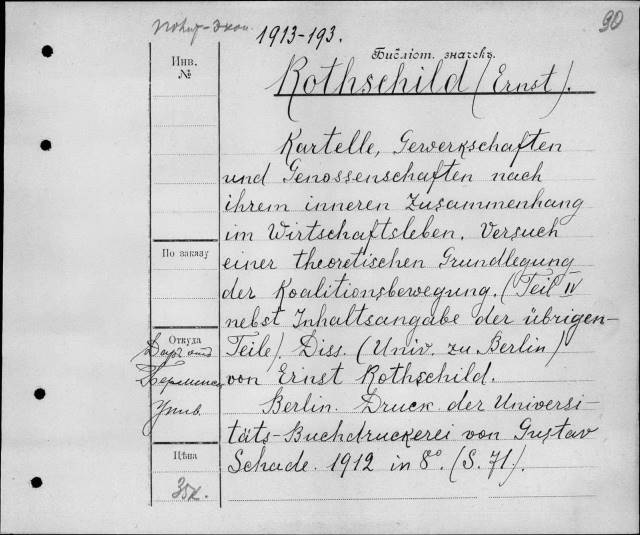 1913-193.
90
Инв.
№
Библіот. значекъ.
Rothschild (Ernst).
Kartelle, Gewerkschaften
und Genossenschaften nach
ihrem inneren Zusammenhang
im Wirtschaftsleben. Versuch
По заказу
einer theoretischen Grundlegung
der Koalitionsbewegung. (Teil IV
nebst Inhaltsangabe der übrigen-
Откуда
Teile). Diss. (Univ. zu Berlin)
von Ernst Rothschild.
Унив.
Berlin. Druck der Universi-
täts-Buchdruckerei von Gustav
Цѣна
Schade. 1912 in 8º. (S. 71).
35к.